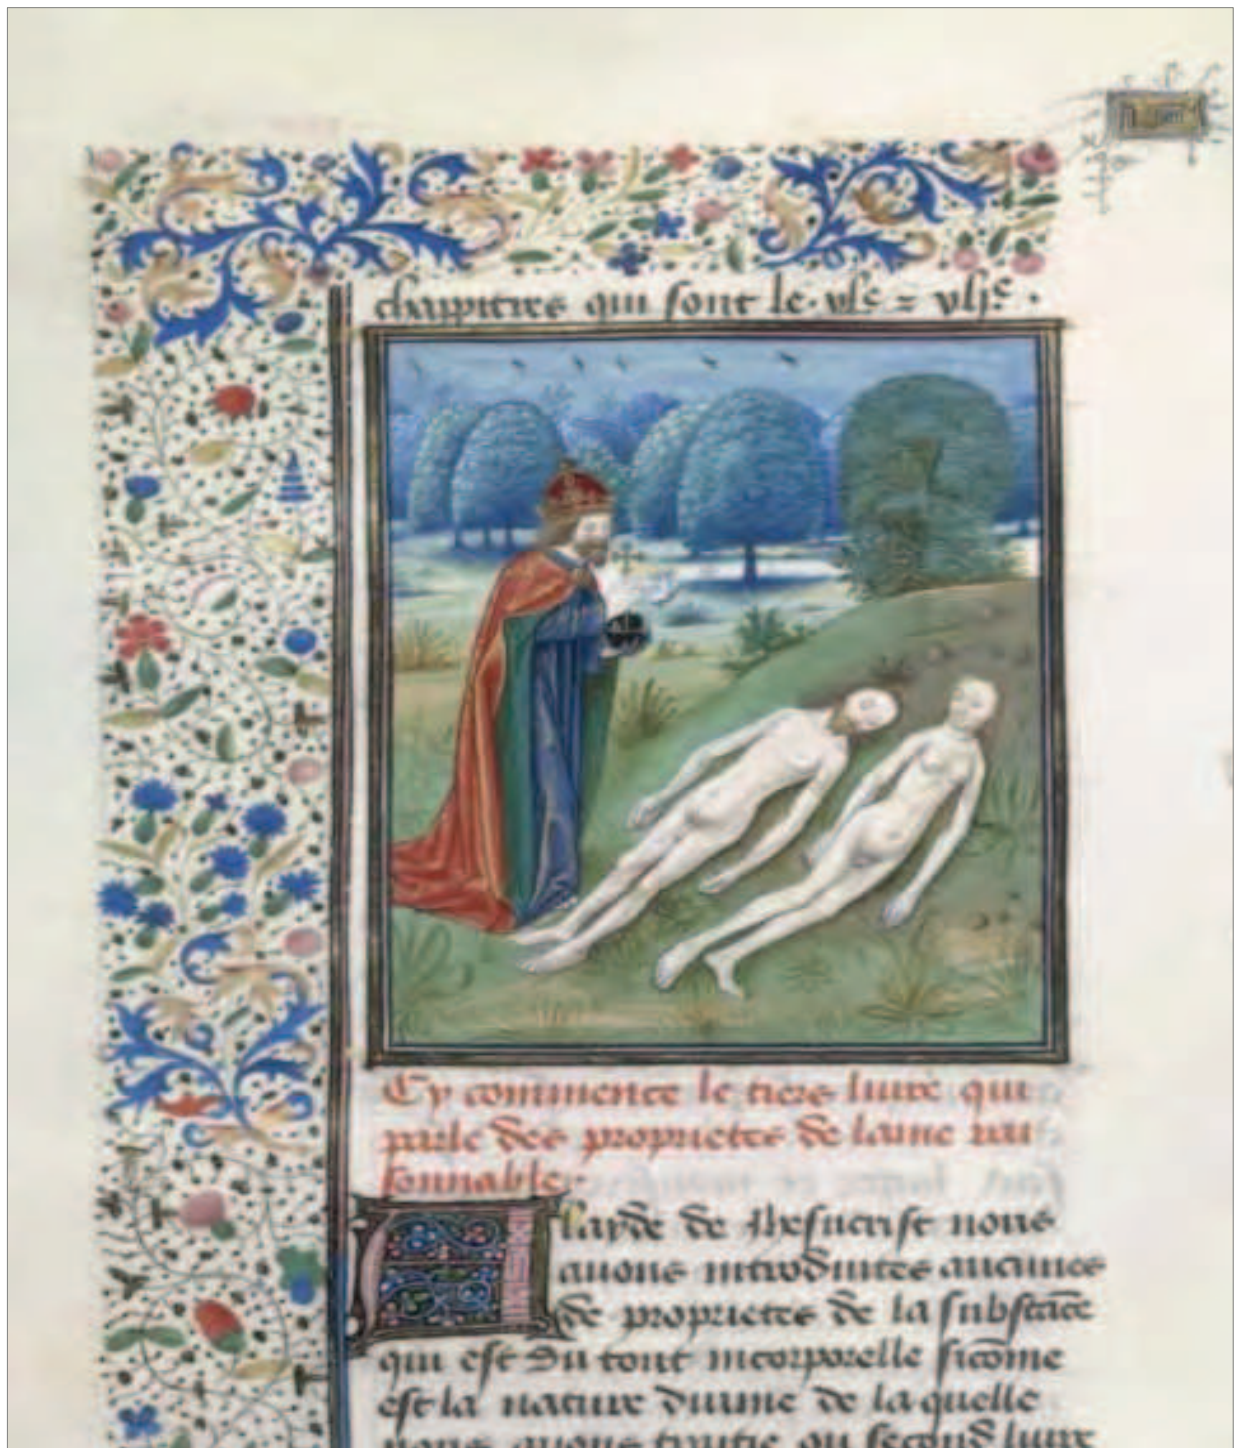 chappitres qui sont le. vIe = vIIe.
Cy commence le tiers liure qui
parle des proprietes de lame rai
sonnable.
A layde de Jhesucrist nous
auons introduittes aucunes
de proprietes de la substāce
qui est du tout incorporelle sicōme
est la nature diuine de la quelle
nous auons traitie ou second liure